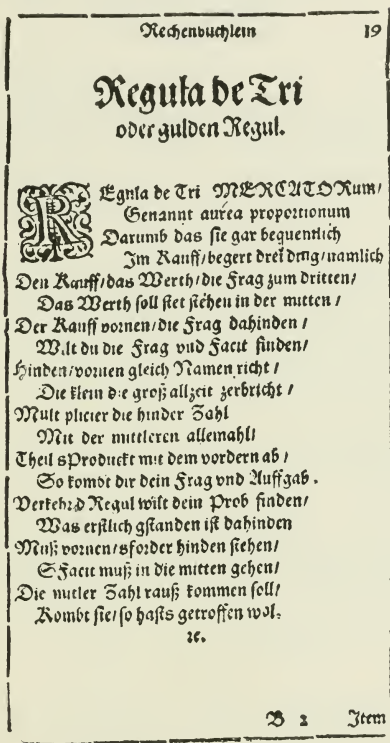 Rechenbuchlein 19
Regula de Tri
oder gulden Regul.
REgula de Tri MERCATORum/
Genannt aurea proportionum
Darumb das sie gar bequemlich
Im Kauff/begert drei ding/namlich
Den Kauff/das Werth/die Frag zum dritten/
Das Werth soll stet stehen in der mitten/
Der Kauff vornen/die Frag dahinden/
Wilt du die Frag vnd Facit finden/
Hinden/vornen gleich Namen richt/
Die klein die groß allzeit zerbricht/
Multiplicier die hinder Zahl
Mit der mittleren allemahl/
Theil sProduckt mit dem vordern ab/
So kombt dir dein Frag vnd Auffgab.
Verkehr d Regul wilt dein Prob finden/
Was erstlich gstanden ist dahinden
Muß vornen/sforder hinden stehen/
S Facit muß in die mitten gehen/
Die mitler Zahl rauß kommen soll/
Kombt sie/so hasts getroffen wol.
ꝛc.
B 2 Item